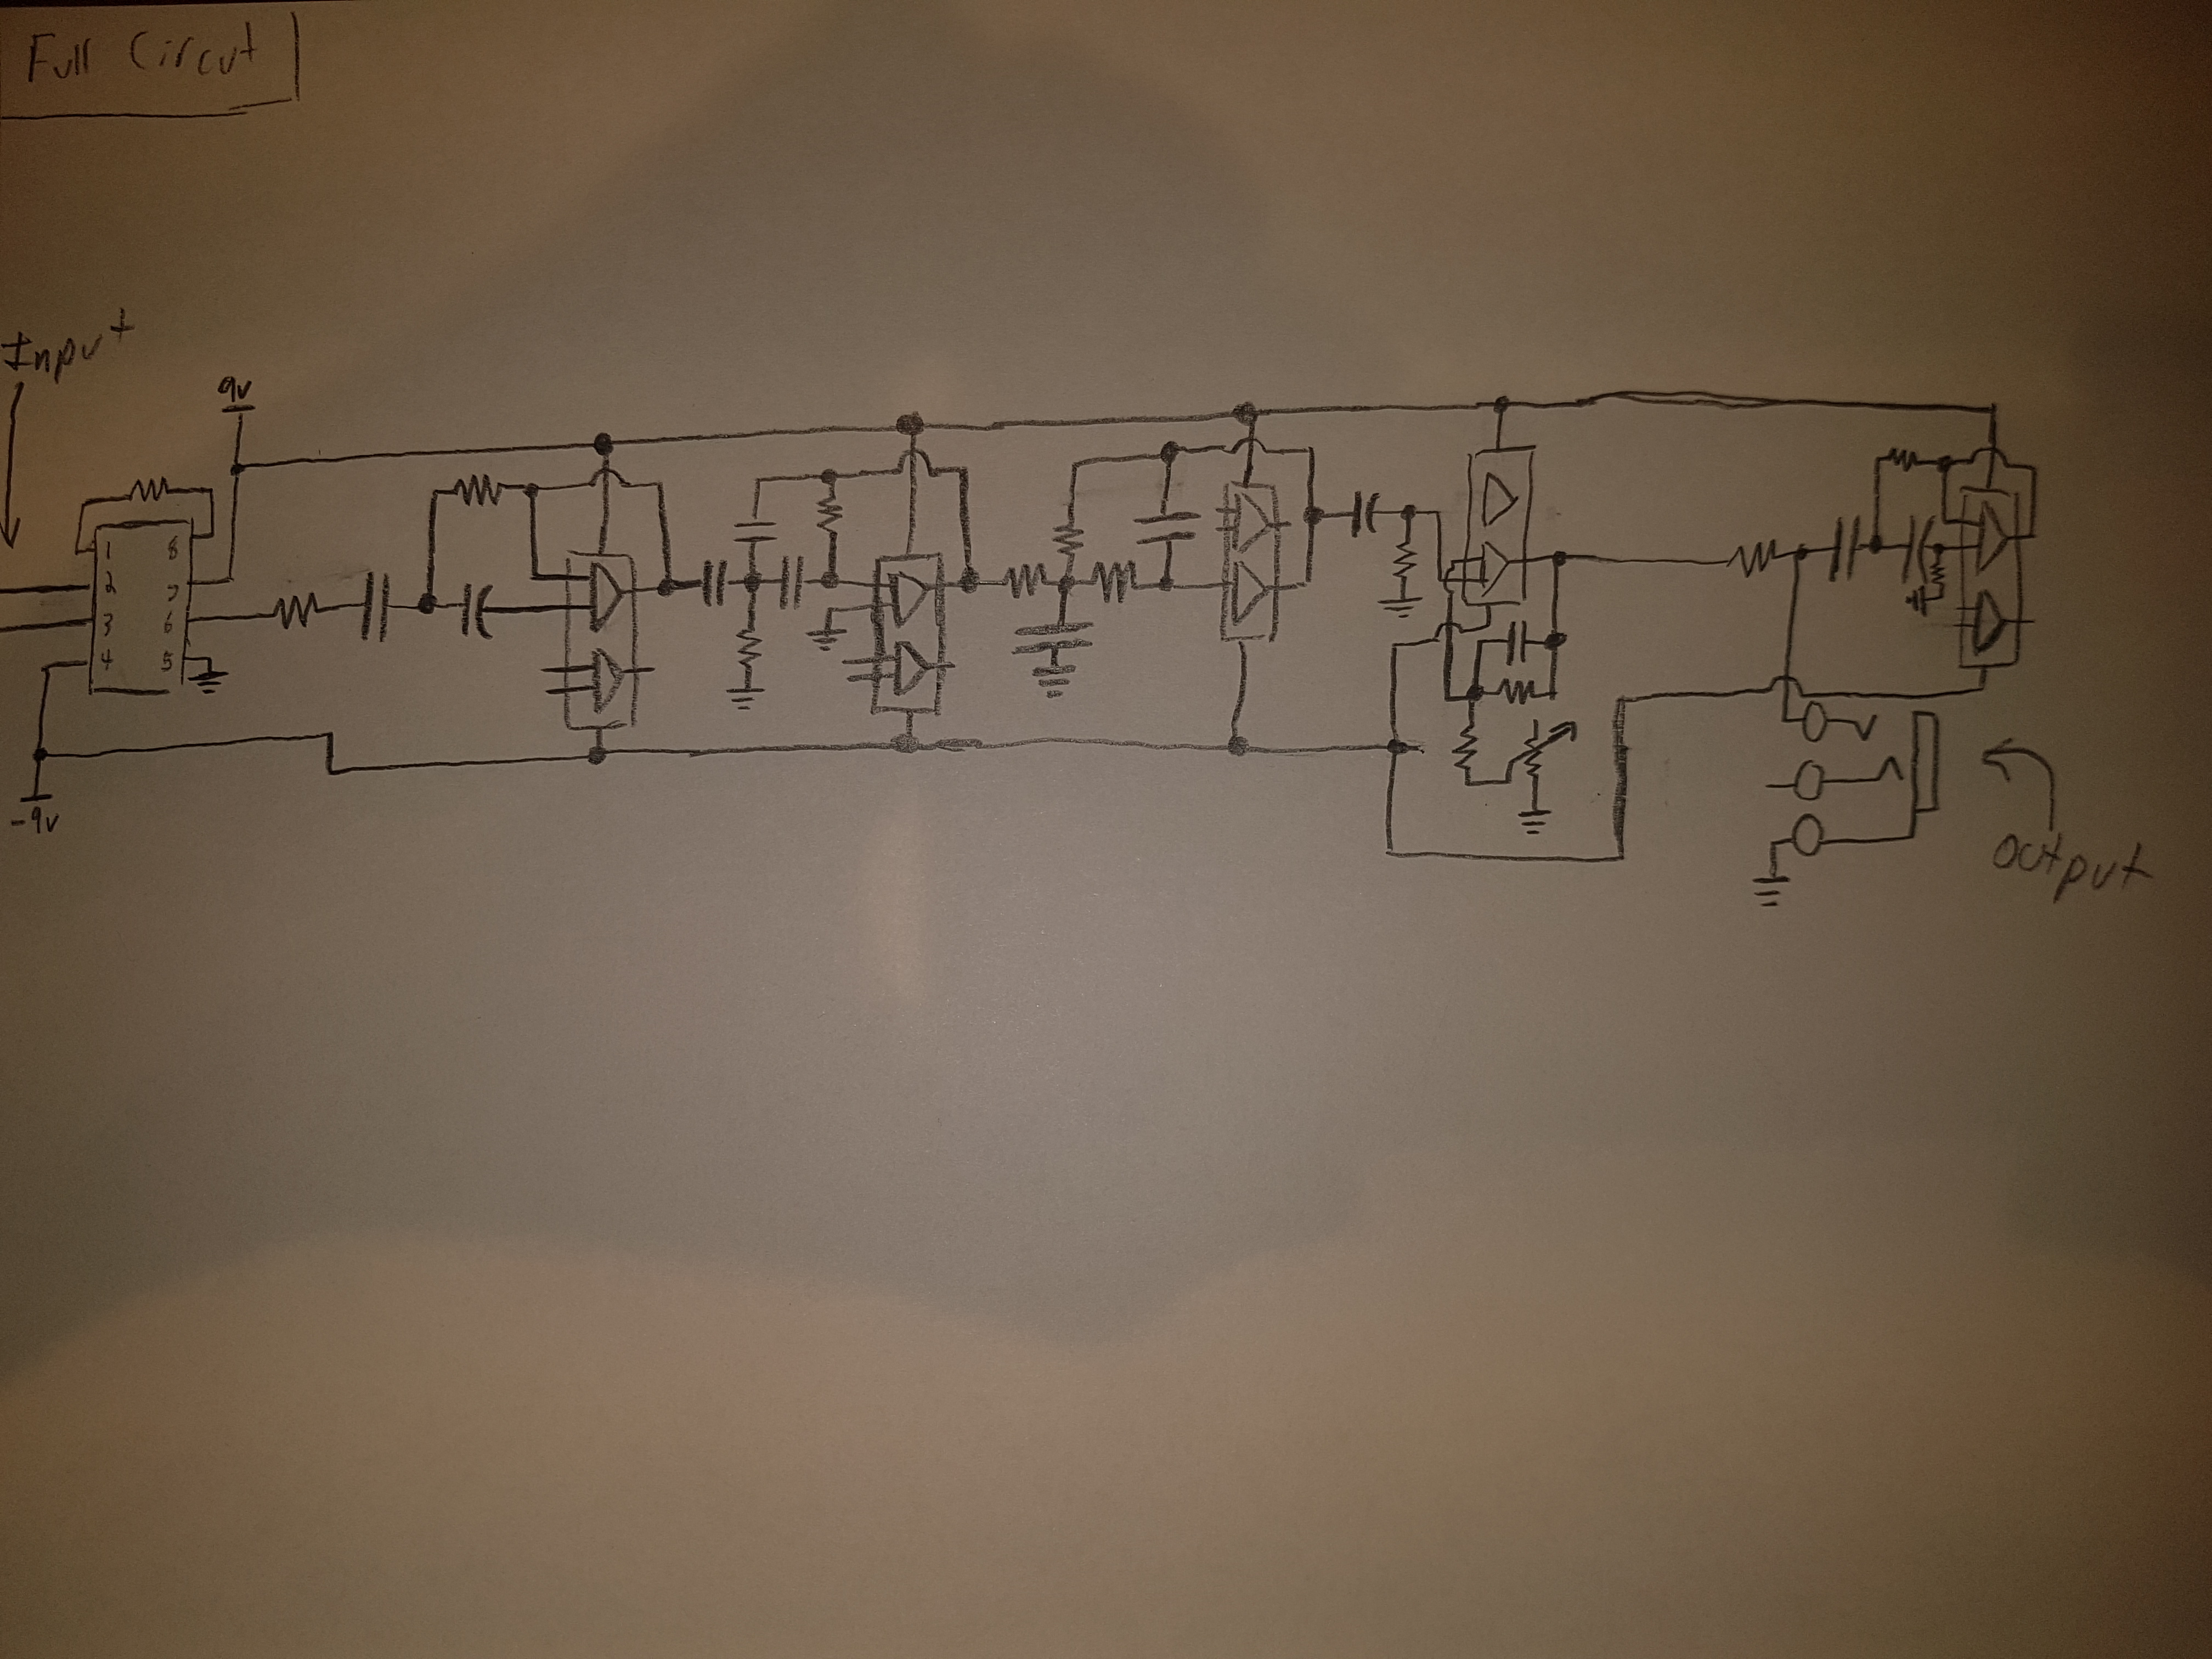 Full Circut
Input
9v
1 8
2 7
3 6
4 5
-9v
output